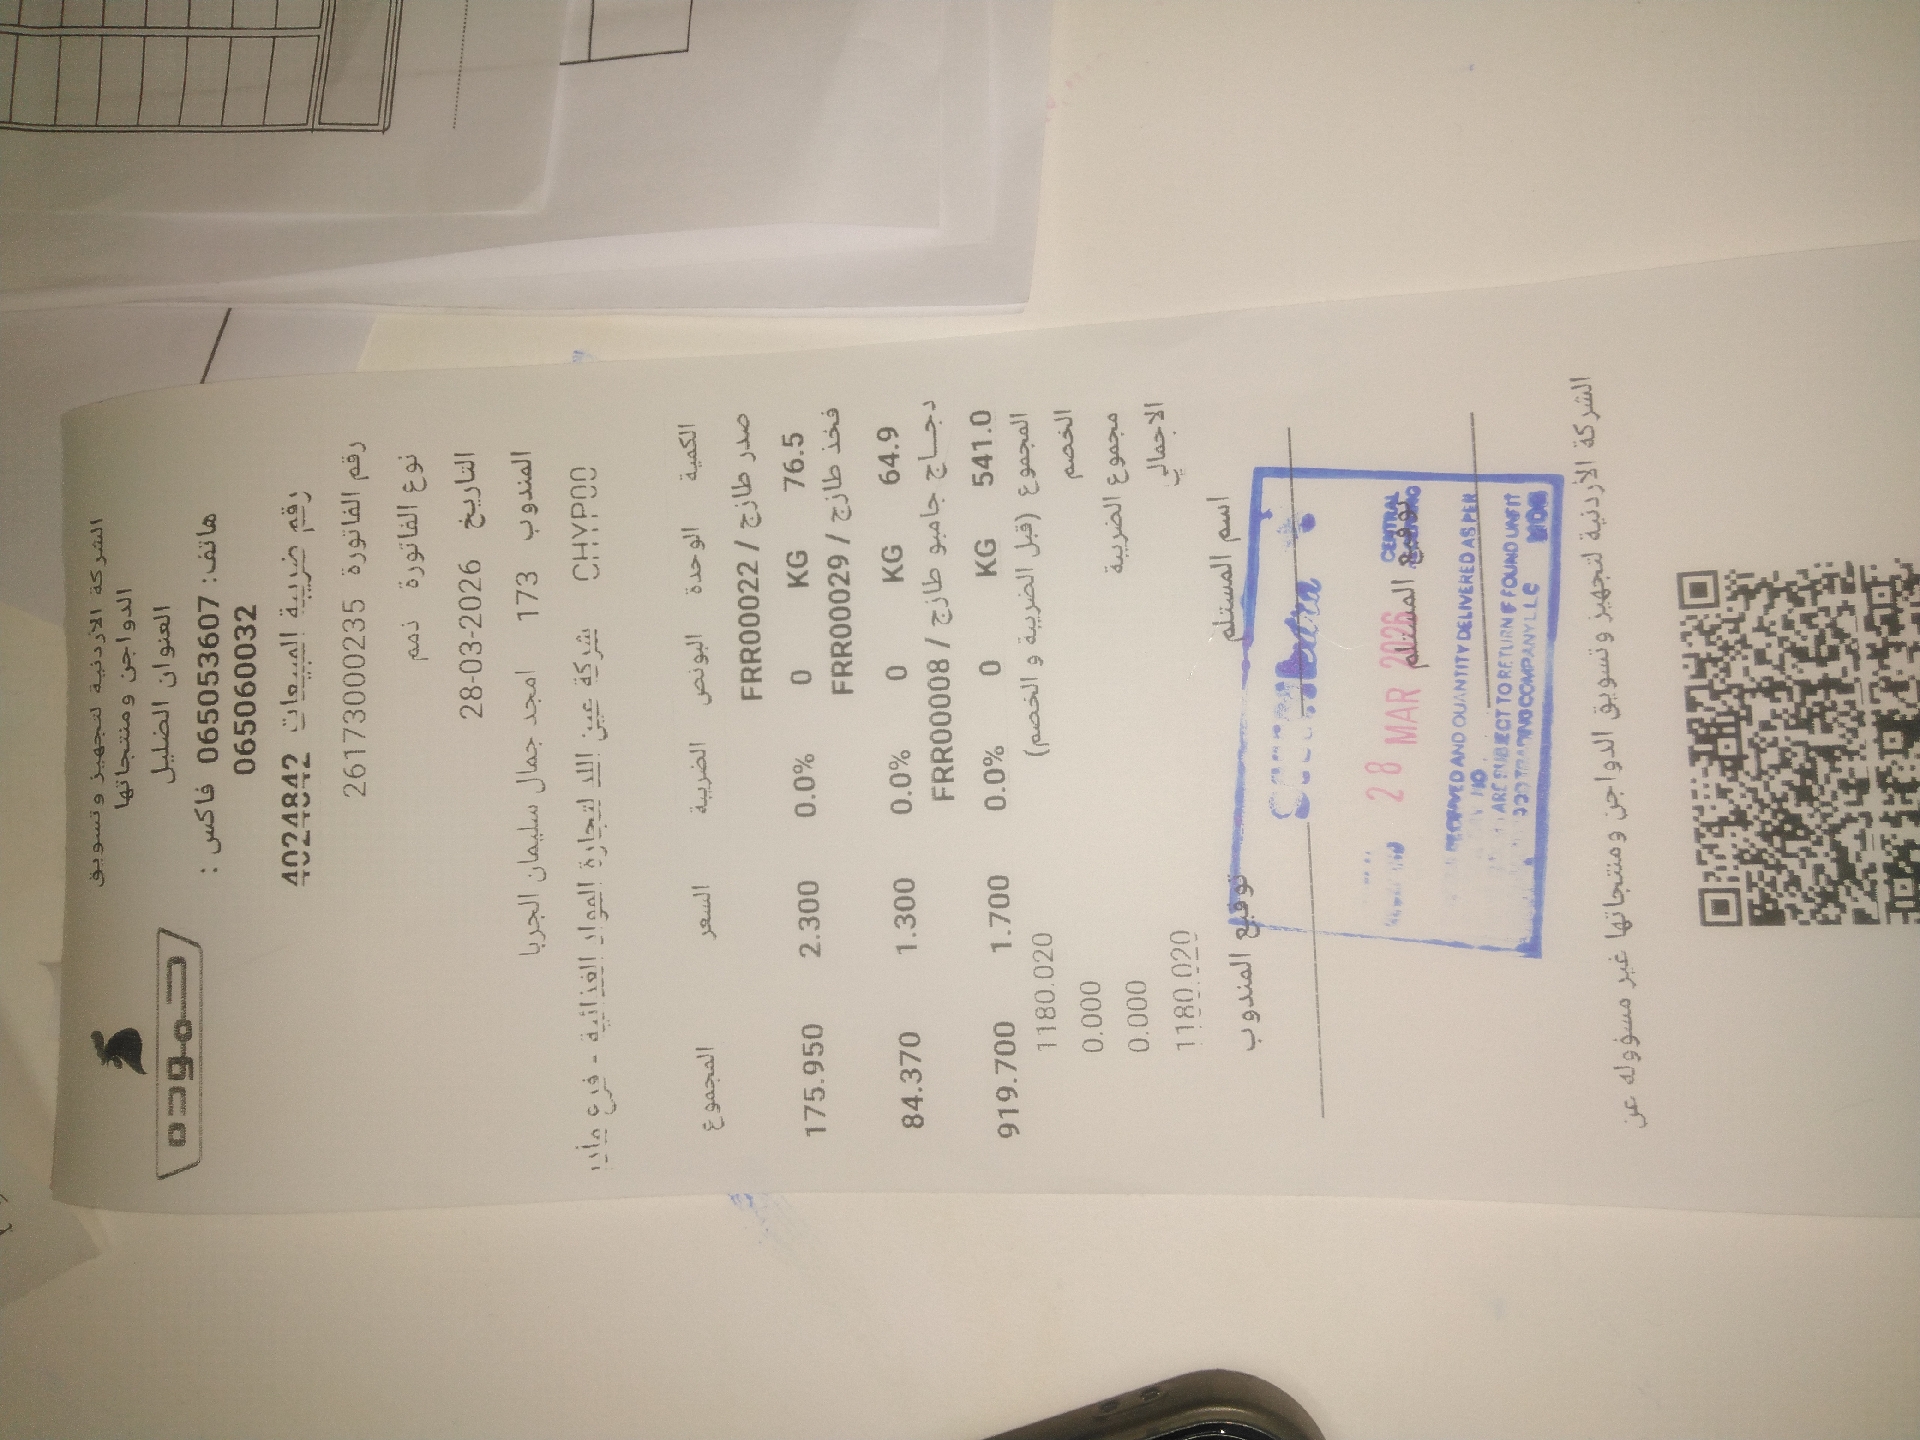 حمودة
الشركة الأردنية لتجهيز وتسويق
الدواجن ومنتجاتها
العنوان الضليل
هاتف: 065053607 فاكس :
065060032
رقم ضريبة المبيعات 4024842
رقم الفاتورة 26173000235
نوع الفاتورة ذمم
التاريخ 28-03-2026
المندوب 173 امجد جمال سليمان الجربا
CHYP00 شركة عين اللد لتجارة المواد الغذائية - فرع مأدبا
الكمية الوحدة البونص الضريبة السعر المجموع
صدر طازج / FRR00022
76.5 KG 0 0.0% 2.300 175.950
فخذ طازج / FRR00029
64.9 KG 0 0.0% 1.300 84.370
دجاج جامبو طازج / FRR00008
541.0 KG 0 0.0% 1.700 919.700
المجموع (قبل الضريبة و الخصم) 1180.020
الخصم 0.000
مجموع الضريبة 0.000
الاجمالي 1180.020
اسم المستلم توقيع المندوب
توقيع المستلم
28 MAR 2026
CENTRAL
RECEIVED AND QUANTITY DELIVERED AS PER
NO.
ARE SUBJECT TO RETURN IF FOUND UNFIT
TRADING COMPANY LLC
الشركة الأردنية لتجهيز وتسويق الدواجن ومنتجاتها غير مسؤوله عن